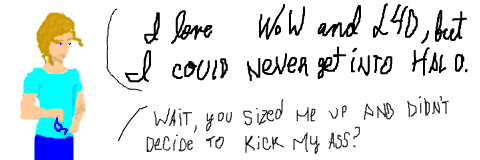 I love WoW and L4D, but
I COULD NEVER get INTO HALO.
WAIT, YOU SIZED ME UP AND DIDN'T
DECIDE TO KICK MY ASS?